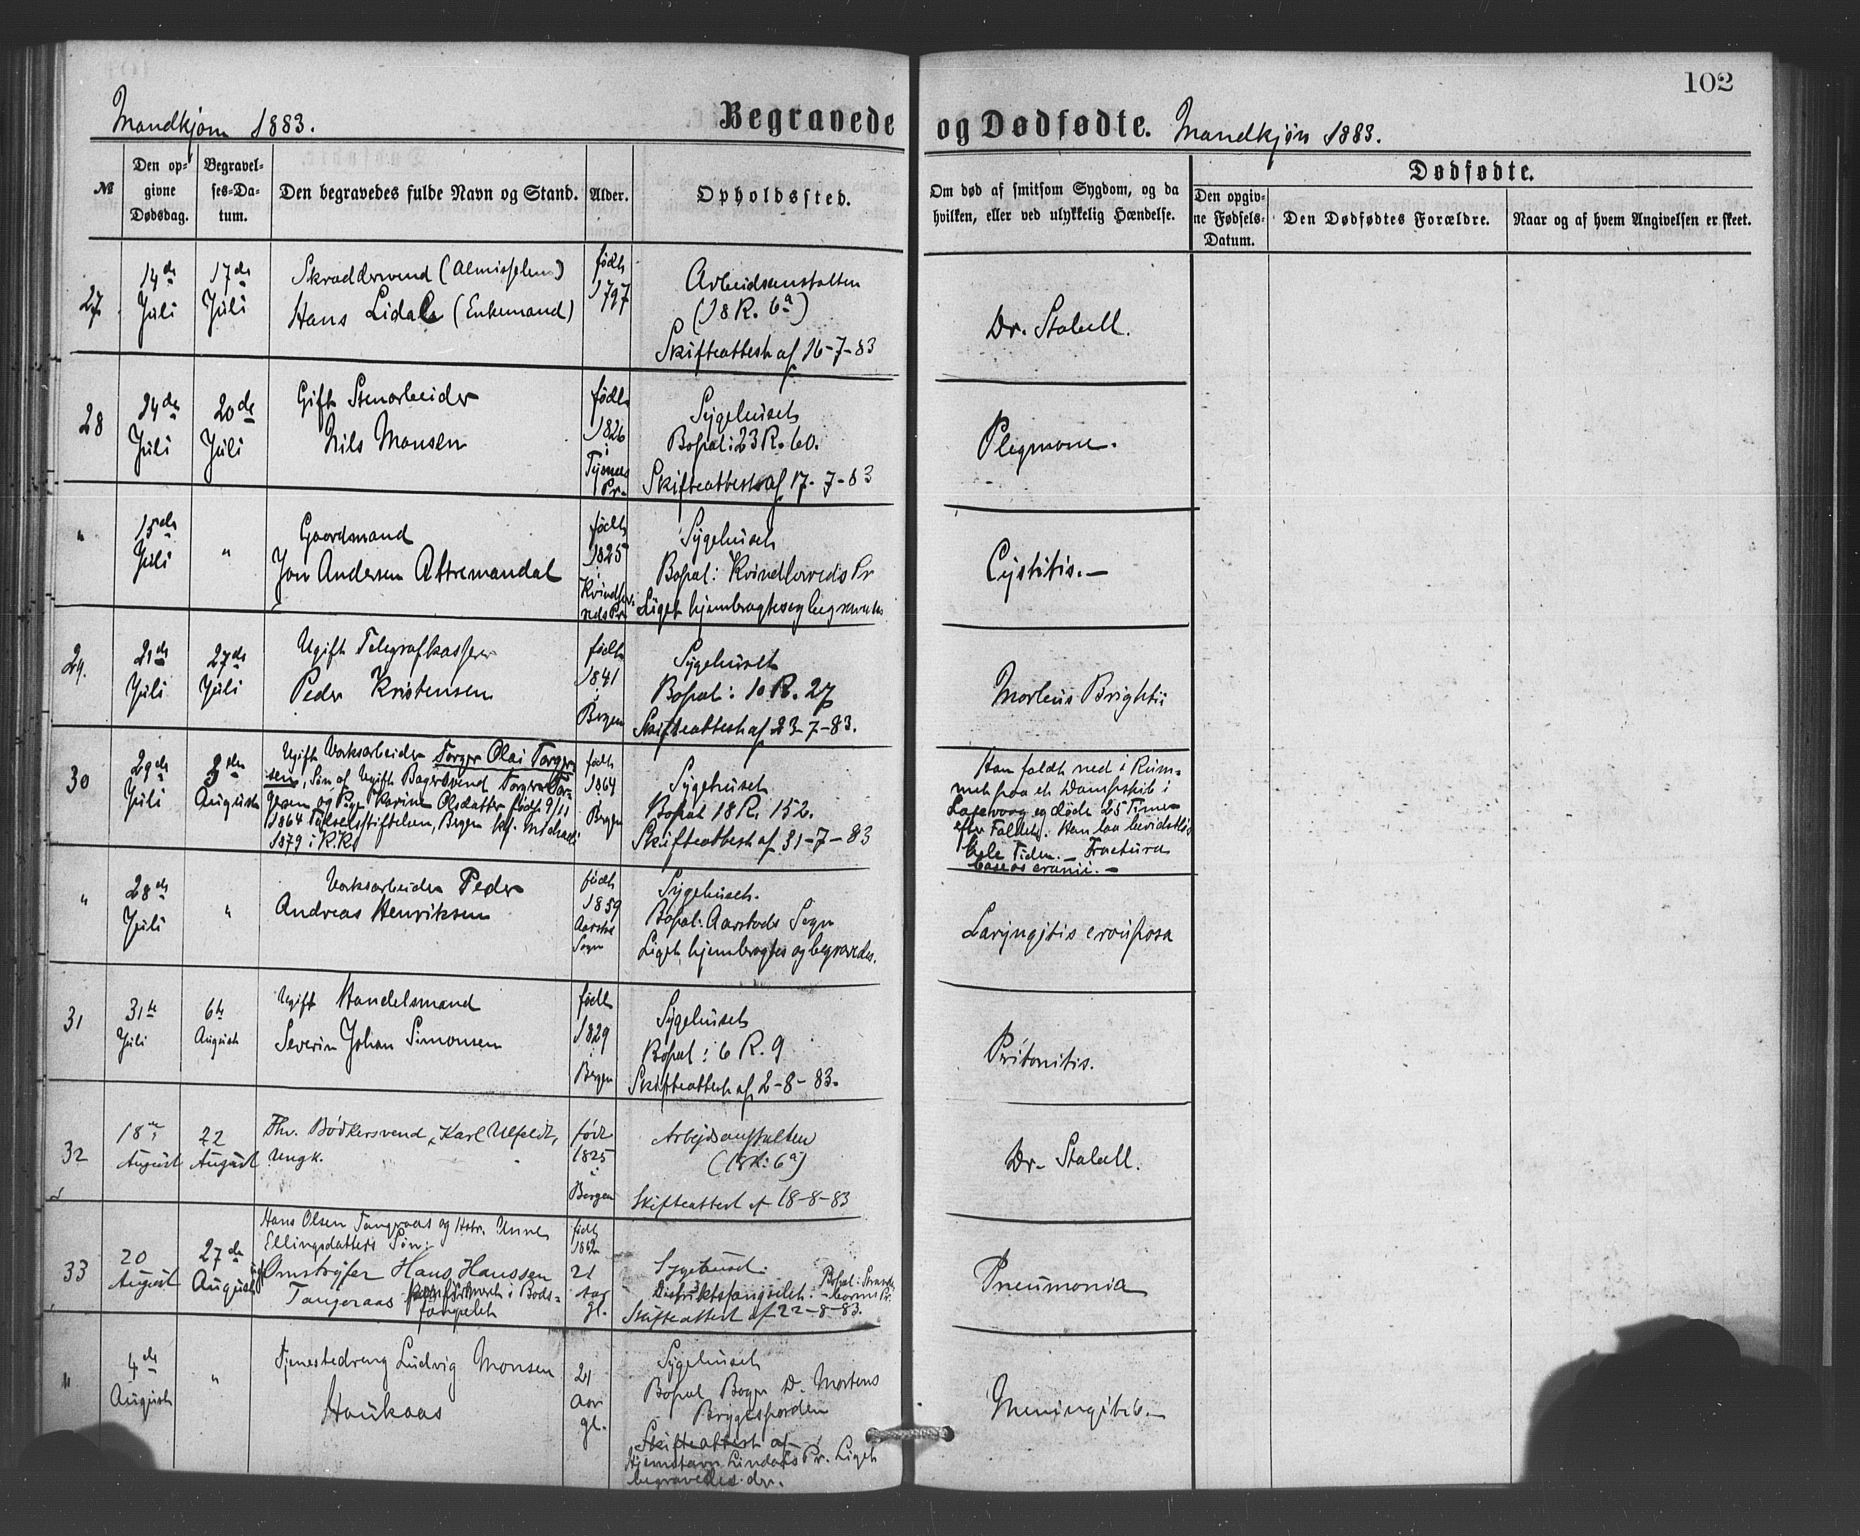 102
Mandkjøn 1883. Begravede og Dødfødte. Mandkjøn 1883.
№
Den opgivne Dødsdag.
Begravelses-Datum.
Den begravedes fulde Navn og Stand.
Alder.
Opholdssted.
Om død af smitsom Sygdom, og da hvilken, eller ved ulykkelig Hændelse.
Dødfødte.
Den opgivne Fødsels-Datum.
Den Dødfødtes Forældre.
Naar og af hvem Angivelsen er skeet.
27
14de Juli
17de Juli
Skræddersvend (Almisselem)
Hans Lidal (Enkemand)
født 1797
Arbeidsanstalten
(18 R. 6a)
Skifteattest af 16-7-83
Dr. Stabell.
28
14de Juli
20de Juli
Gift Stenarbeider
Nils Monsen
født 1826 i
Pr.
Sygehuset
Bopæl: 23 R. 60.
Skifteattest af 17-7-83
Plegmone.
"
15de Juli
"
Gaardmand
Jon Andersen
født 1825 i
Sygehuset
Bopæl: Kvindherreds Pr
Liget hjembragtes og begravedes
Cystitis.—
29.
21de Juli
27de Juli
Ugift Telegrafkasserer
Peder Kristensen
født 1841 i Bergen
Sygehuset
Bopæl: 10 R. 27
Skifteattest af 23-7-83.
Morbus Brightii
30
29de Juli
3die August
Ugift Verksarbeider Torger Olai Torger-
sen, Søn af Ugift Bagersvend Torger Tor-
gersen og Pige Karine Olsdatter født 9/11
1864 Fødselsstiftelsen, Bergen kf. Michaeli
1879 i K.K.
født 1864 Bergen
Sygehuset
Bopæl 18 R. 152.
Skifteattest af 31-7-83
Han faldt ned i Rum-
met paa et Dampskib i
Laxevaag og døde 25 Timer
efter Faldet. Han laa bevidstløs
hele Tiden. — Fractura
baseos cranii.—
"
28de Juli
"
Verksarbeider Peder
Andreas Henriksen
født 1859 Aarstad Sogn
Sygehuset.
Bopæl: Aarstads Sogn
Liget hjembragtes og begravedes.
Laryngitis crouposa
31
31te Juli
6te August
Ugift Handelsmand
Severin Johan Simonsen
født 1829 i Bergen
Sygehuset
Bopæl: 6 R. 9
Skifteattest af 2-8-83.
Pritonitis.
32
18de August
22 August
Fhv. Bødkersvend, Karl Ulfeldt,
Ungk.
født 1825 i Bergen
Arbejdsanstalten
(18 R: 6a)
Skifteattest af 18-8-83
Dr. Stabell.
33
20 August
27de August
Hans Olsen Tangeraas og Hstr. Unne
Ellingsdatters Søn:
Omstrejfer Hans Hanssen
Tangeraas konfirmert i Bods-
fængslet
født 1862
21 Aar gl.
Sygehuset:
Distriktsfængslet.
Skifteattest af 22-8-83.
Pneumonia
"
4de August
"
Tjenestedreng Ludvig Monsen
Haukaas
21 Aar gl.
Sygehuset
Bopæl Boger D. Mortens
Bryggesporden
Skifteattest af
Hjemstavn Lindaas Pr. Liget
begravedes der.
Meningitis.—